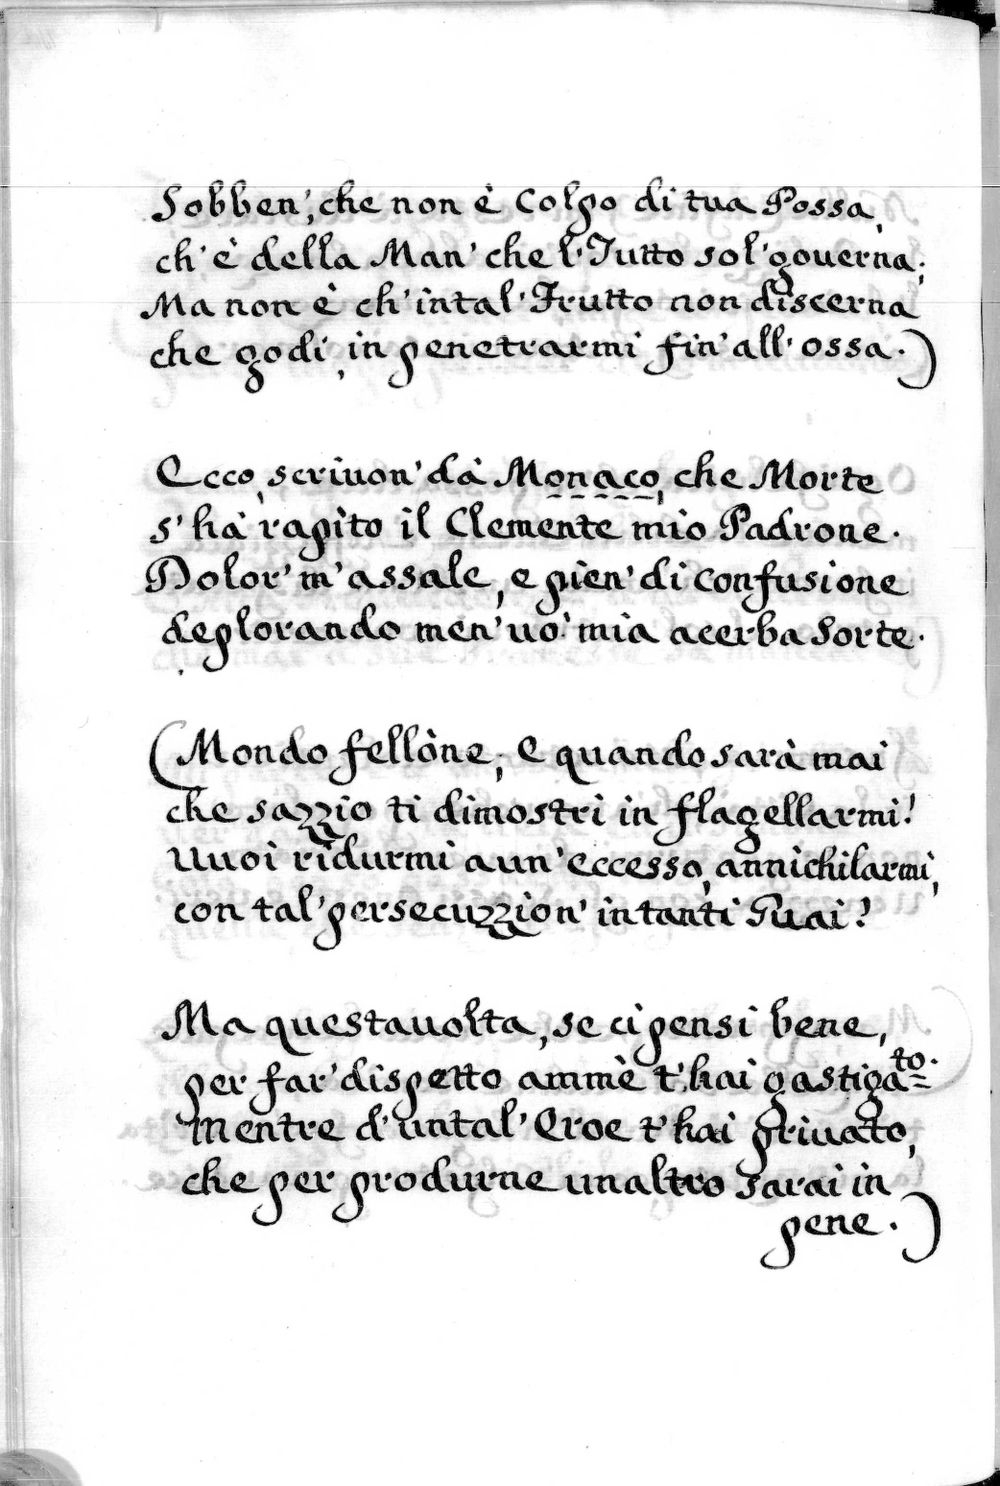 Sobben', che non è Colpo di tua Possa,
ch'è della Man' che l'Tutto sol' governa;
Ma non è ch'in tal' Frutto non discerna
che godi, in penetrarmi fin' all' ossa.)
Ecco, scrivon' dà Monaco, che Morte
s'hà rapito il Clemente mio Padrone.
Dolor' m'assale, e pien' di confusione
deplorando men' uò' mia acerba Sorte.
(Mondo fellòne, e quando sarà mai
che sazzio ti dimostri in flagellarmi!
Vuoi ridurmi a un' eccesso, annichilarmi,
con tal' persecuzzion' in tanti Guai?
Ma questa uolta, se ci pensi bene,
per far' dispetto ammè t'hai gastiga=to.
Mentre d'un tal' Eroe t'hai priuato,
che per produrne un altro sarai in
pene.)